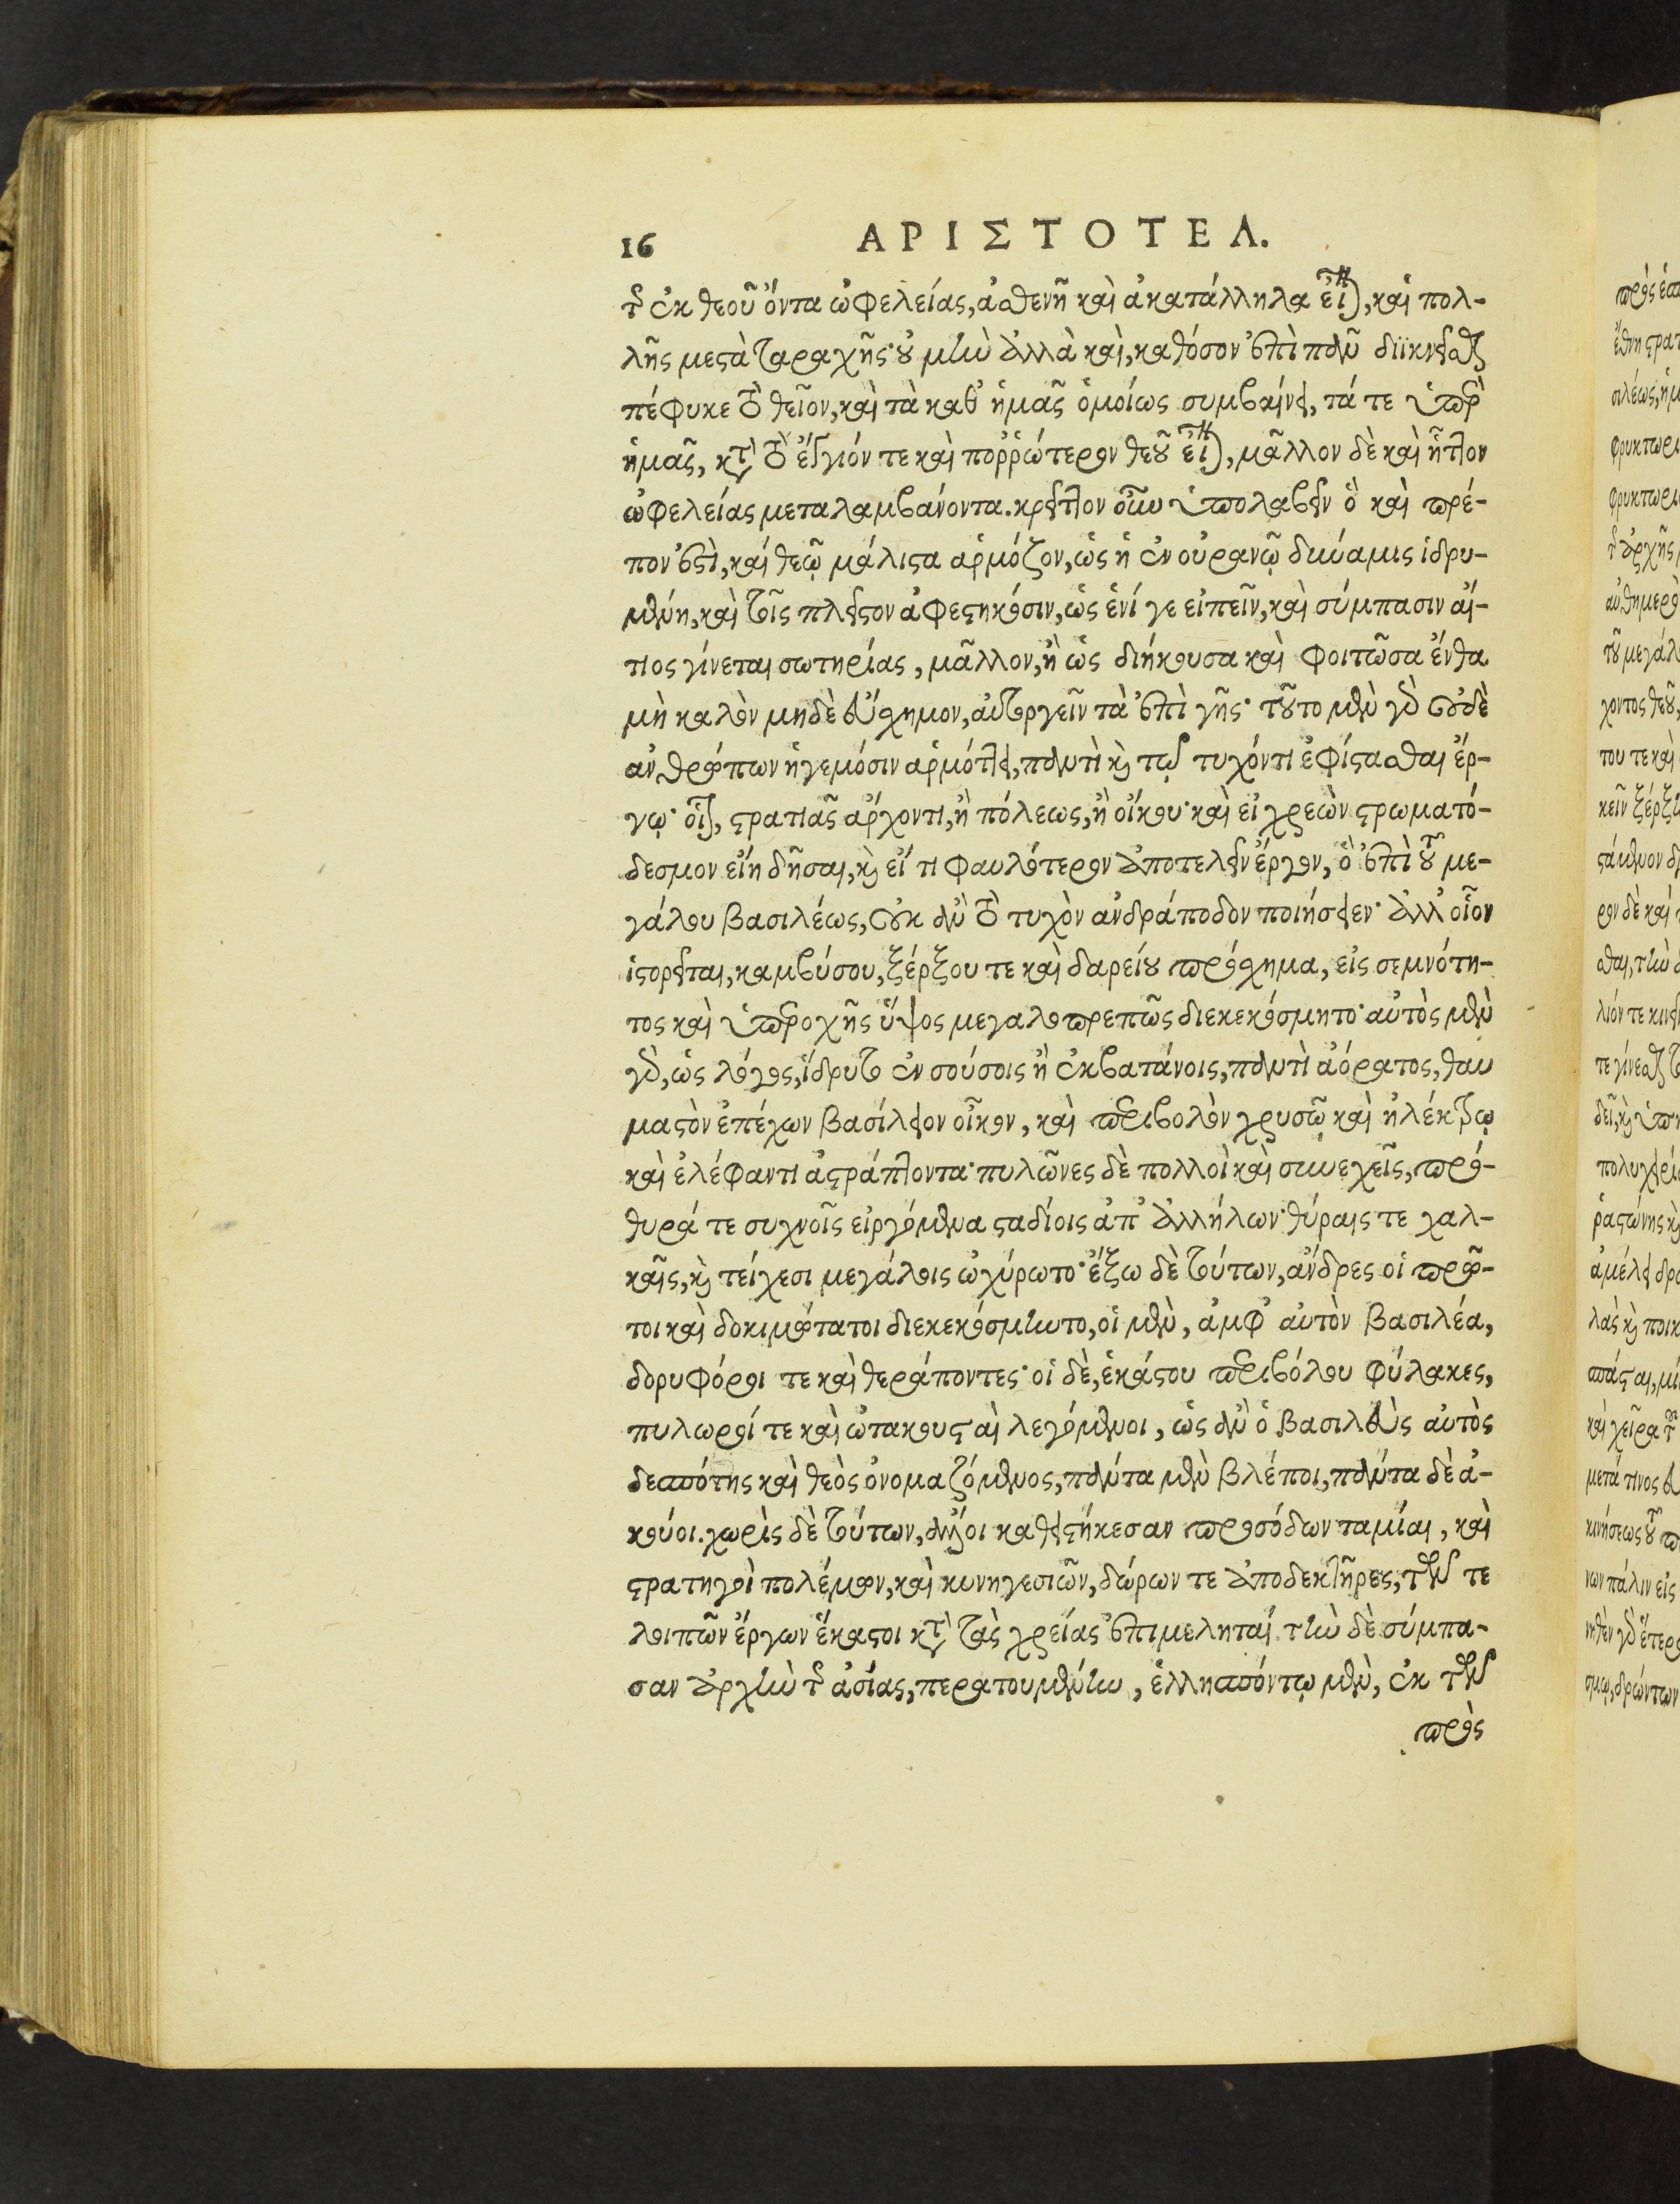 16 ΑΡΙΣΤΟΤΕΛ.
τῆς ἐκ θεοῦ ὄντα ὠφελείας, ἀσθενῆ καὶ ἀκατάλληλα εἶναι, καὶ πολ-
λῆς μεστὰ ταραχῆς· οὐ μὴν ἀλλὰ καὶ, καθόσον ἐπὶ πᾶν διϊκνεῖσθαι
πέφυκε τὸ θεῖον, καὶ τὰ καθ' ἡμᾶς ὁμοίως συμβαίνει, τά τε ὑπὲρ
ἡμᾶς, κατὰ τὸ ἔγγιόν τε καὶ πορῤώτερον θεοῦ εἶναι, μᾶλλον δὲ καὶ ἧττον
ὠφελείας μεταλαμβάνοντα. κρεῖττον οὖν ὑπολαβεῖν ὃ καὶ πρέ-
πον ἐστὶ, καὶ θεῷ μάλιστα ἁρμόζον, ὡς ἡ ἐν οὐρανῷ δύναμις ἱδρυ-
μένη, καὶ τοῖς πλεῖστον ἀφεστηκόσιν, ὡς ἑνί γε εἰπεῖν, καὶ σύμπασιν αἴ-
τιος γίνεται σωτηρίας, μᾶλλον, ἢ ὡς διήκουσα καὶ φοιτῶσα ἔνθα
μὴ καλὸν μηδὲ εὔσχημον, αὐτουργεῖν τὰ ἐπὶ γῆς· τοῦτο μὲν γὰρ οὐδὲ
ἀνθρώπων ἡγεμόσιν ἁρμόττει, παντὶ καὶ τῷ τυχόντι ἐφίστασθαι ἔρ-
γῳ· οἷον, στρατιᾶς ἄρχοντι, ἢ πόλεως, ἢ οἴκου· καὶ εἰ χρεὼν στρωματό-
δεσμον εἴη δῆσαι, καὶ εἴ τι φαυλότερον ἀποτελεῖν ἔργον, ὃ ἐπὶ τοῦ με-
γάλου βασιλέως, οὐκ ἂν τὸ τυχὸν ἀνδράποδον ποιήσειεν· ἀλλ' οἷον
ἱστορεῖται, καμβύσου, ξέρξου τε καὶ δαρείου πρόσχημα, εἰς σεμνότη-
τος καὶ ὑπεροχῆς ὕψος μεγαλοπρεπῶς διεκεκόσμητο· αὐτὸς μὲν
γὰρ, ὡς λόγος, ἵδρυτο ἐν σούσοις ἢ ἐκβατάνοις, παντὶ ἀόρατος, θαυ
μαστὸν ἐπέχων βασίλειον οἶκον, καὶ περιβολὸν χρυσῷ καὶ ἠλέκτρῳ
καὶ ἐλέφαντι ἀστράπτοντα· πυλῶνες δὲ πολλοὶ καὶ συνεχεῖς, πρό-
θυρά τε συχνοῖς εἰργόμενα σταδίοις ἀπ' ἀλλήλων· θύραις τε χαλ-
καῖς, καὶ τείχεσι μεγάλοις ὠχύρωτο· ἔξω δὲ τούτων, ἄνδρες οἱ πρῶ-
τοι καὶ δοκιμώτατοι διεκεκόσμηντο, οἱ μὲν, ἀμφ' αὐτὸν βασιλέα,
δορυφόροι τε καὶ θεράποντες· οἱ δὲ, ἑκάστου περιβόλου φύλακες,
πυλωροί τε καὶ ὠτακουσταὶ λεγόμενοι, ὡς ἂν ὁ βασιλεὺς αὐτὸς
δεσπότης καὶ θεὸς ὀνομαζόμενος, πάντα μὲν βλέποι, πάντα δὲ ἀ-
κούοι. χωρὶς δὲ τούτων, ἄλλοι καθειστήκεσαν προσόδων ταμίαι, καὶ
στρατηγοὶ πολέμων, καὶ κυνηγεσιῶν, δώρων τε ἀποδεκτῆρες, τῶν τε
λοιπῶν ἔργων ἕκαστοι κατὰ τὰς χρείας ἐπιμεληταί. τὴν δὲ σύμπα-
σαν ἀρχὴν τῆς ἀσίας, περατουμένην, ἑλλησπόντῳ μὲν, ἐκ τῶν
πρὸς